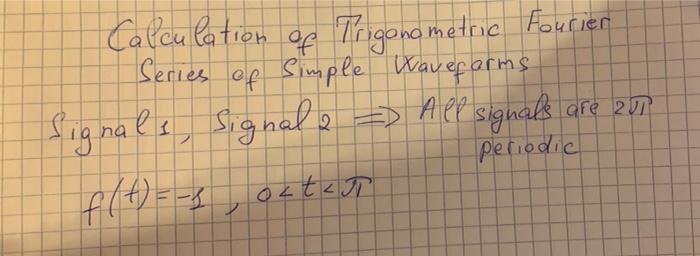 Calculation of Trigonometric Fourier
Series of Simple Waveforms
Signal 1, Signal 2 => All signals are 2π
periodic
f(t)=-1, 0<t<π